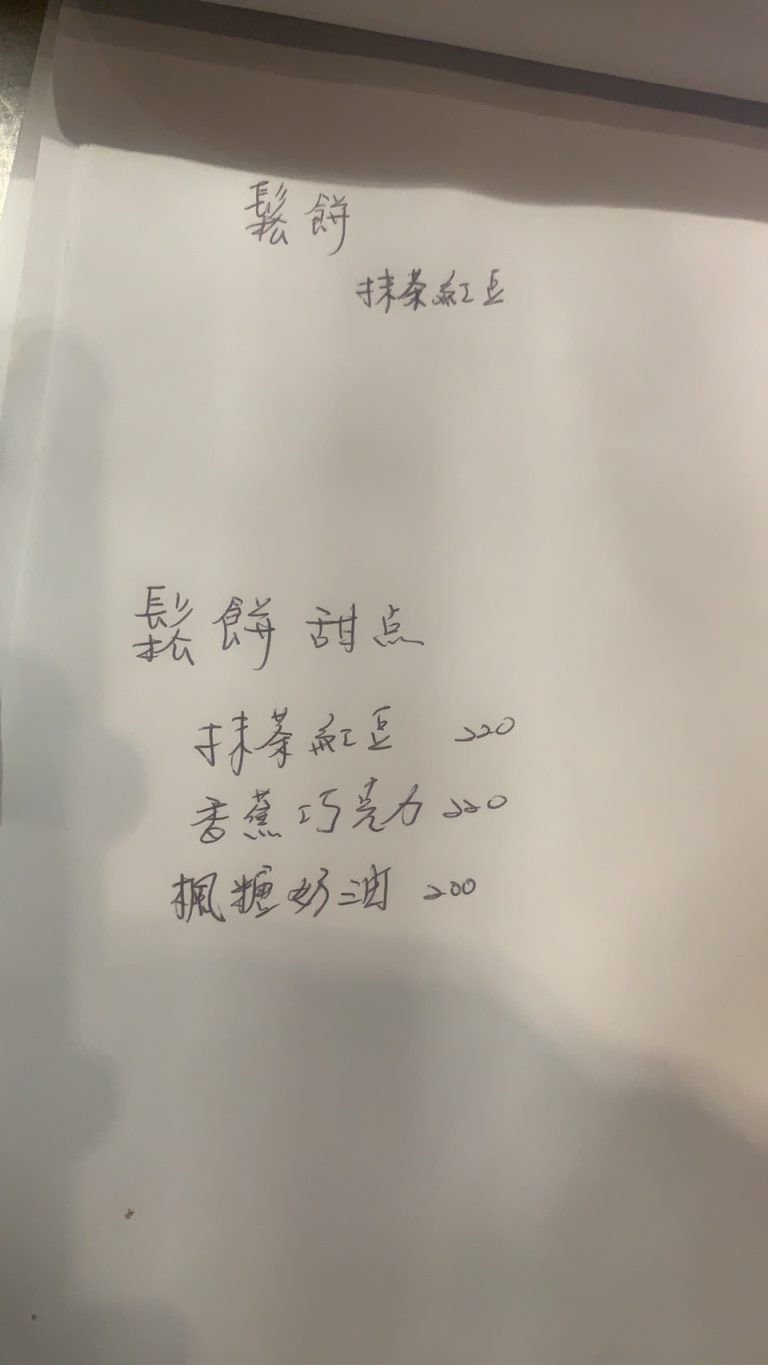 鬆餅
抹茶紅豆
鬆餅甜点
抹茶紅豆 220
香蕉巧克力 220
楓糖奶油 200